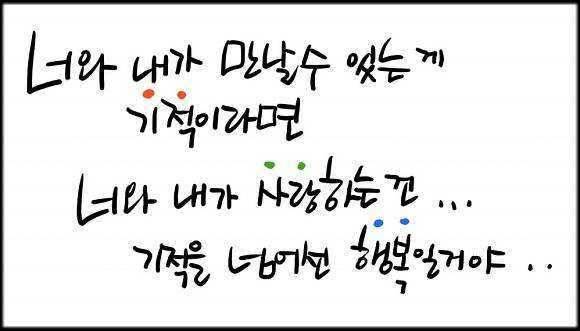 너와 내가 만날수 있는게
기적이라면
너와 내가 사랑하는건 ...
기적을 넘어선 행복일거야 ..